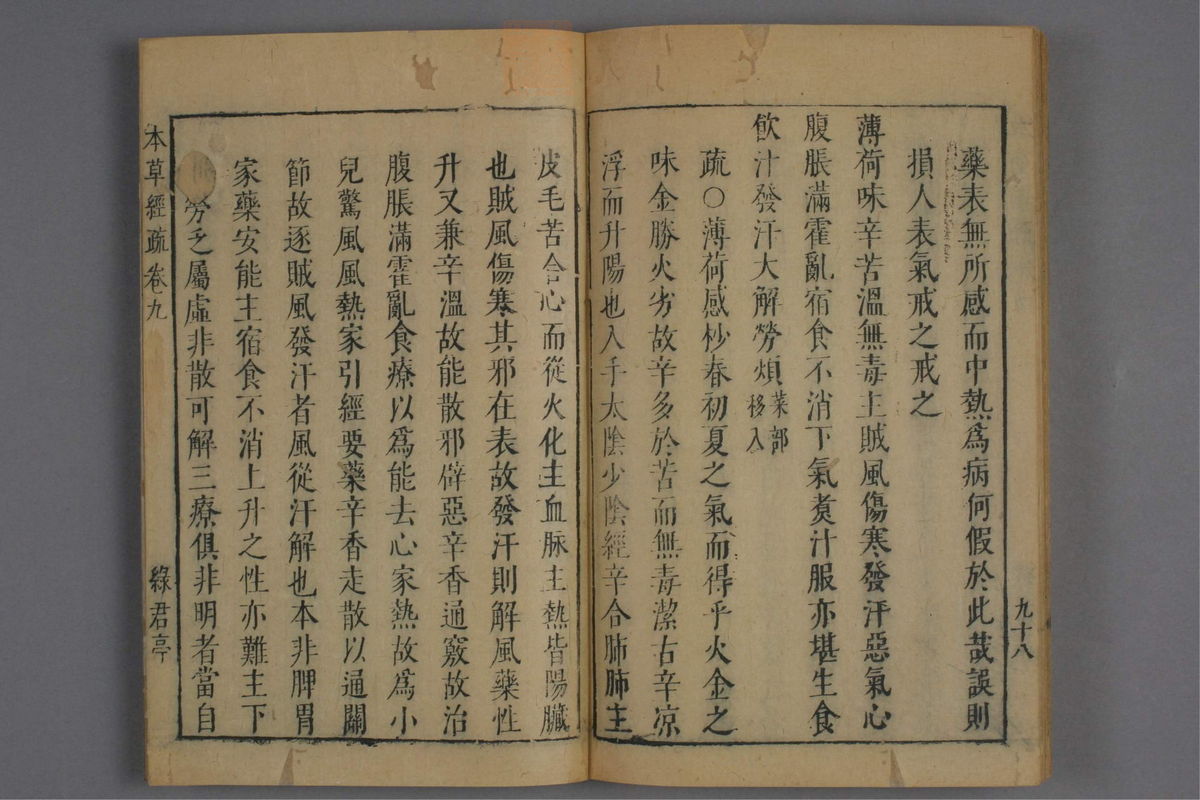 九十八
藥表無所感而中熱爲病何假於此哉誤則
損人表氣戒之戒之
薄荷味辛苦溫無毒主賊風傷寒發汗惡氣心
腹脹滿霍亂宿食不消下氣煑汁服亦堪生食
飲汁發汗大解勞煩菜部
移入
疏○薄荷感杪春初夏之氣而得乎火金之
味金勝火劣故辛多於苦而無毒潔古辛凉
浮而升陽也入手太陰少陰經辛合肺肺主
皮毛苦合心而從火化主血脉主熱皆陽臟
也賊風傷寒其邪在表故發汗則解風藥性
升又兼辛溫故能散邪僻惡辛香通竅故治
腹脹滿霍亂食療以爲能去心家熱故爲小
兒驚風風熱家引經要藥辛香走散以通關
節故逐賊風發汗者風從汗解也本非脾胃
家藥安能主宿食不消上升之性亦難主下
勞乏屬虛非散可解三療俱非明者當自
本草經疏卷九
綠君亭